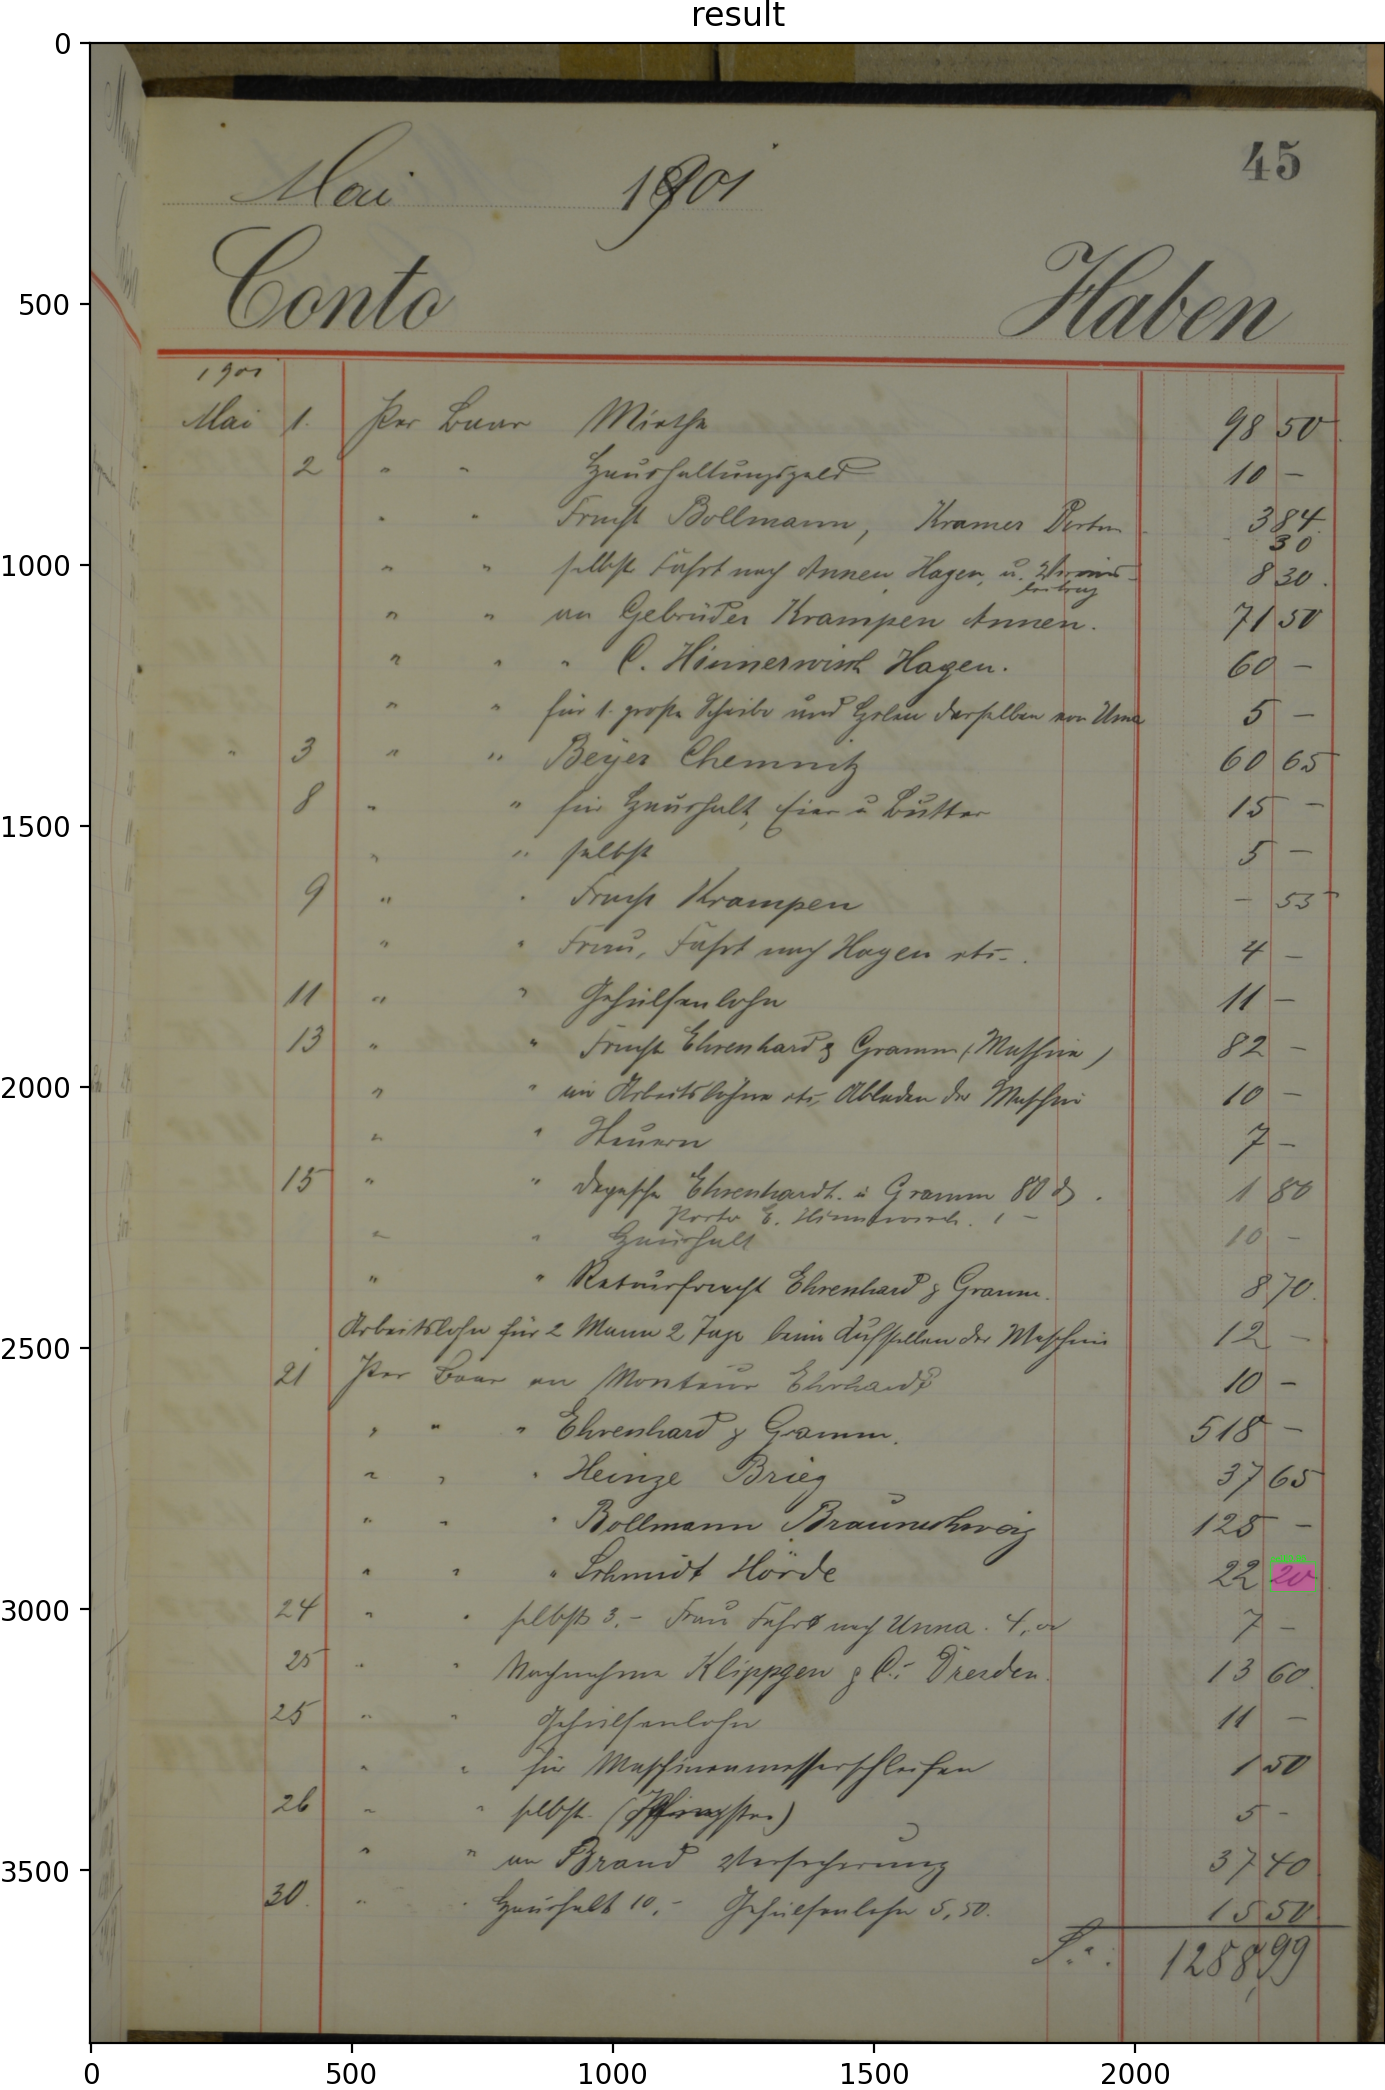 result
45
Mai 1901
Conto Haben
1901
Mai 1. Per Baar Miethe 98 50
2 " " Haushaltungsgeld 10 —
" " Fracht Bollmann, Kramer 3 84
30
" " selbst Fahrt nach Annen, Hagen, u. Vereins- 8 30.
beitrag
" " an Gebrüder Krampen Annen. 71 50
" " " C. Hinnerwisch Hagen. 60 —
" " für 1 große Scheibe und Holen derselben von Unna 5 —
" 3 " " Beyer Chemnitz 60 65
8 " " für Haushalt, Eier u Butter 15 —
" " selbst 5 —
9 " " Fracht Krampen — 55
" " Frau, Fahrt nach Hagen etc. 4 —
11 " " Gehülfenlohn 11 —
13 " " Fracht Ehrenhard & Gramm (Maschine) 82 —
" " an Arbeitslohn etc. Abladen der Maschine 10 —
" " Steuern 7 —
15 " " Depesche Ehrenhardt. u Gramm 80 1 80
Porto C. Hinnerwisch. 1 —
" " Haushalt 10 —
" " Retourfracht Ehrenhard & Gramm. 8 70.
Arbeitslohn für 2 Mann 2 Tage beim Aufstellen der Maschine 12 —
21 Per Baar an Monteur Ehrhardt 10 —
" " " Ehrenhard & Gramm. 518 —
" " " Heinze Brieg 37 65
" " " Bollmann Braunschweig 125 —
" " " Schmidt Hörde 22 20
24 " " selbst 3.– Frau Fahrt nach Unna. 4, 7 —
25 " " Nachnahme Klippgen & C. Dresden. 13 60
25 " " Gehülfenlohn 11 —
" " für Maschinenmesserschleifen 1 50
26 " " selbst (Pfingsten) 5 -
" " an Brand Versicherung 37 40
30. " " Haushalt 10,– Gehülfenlohn 5,50. 15 50
S.: 1288,99
0
500
1000
1500
2000
2500
3000
3500
0 500 1000 1500 2000